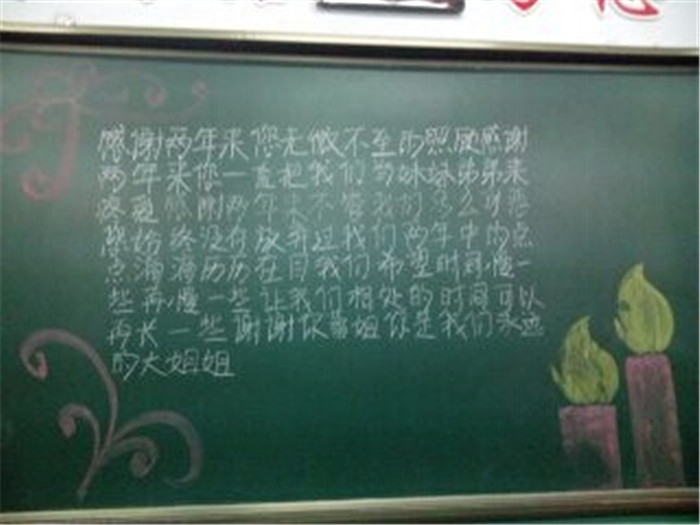 感谢两年来您无微不至的照顾感谢
两年来您一直把我们当妹妹弟弟来
疼爱感谢两年来不管我们怎么
您始终没有放弃过我们两年中的点
点滴滴历历在目我们希望时间慢一
些再慢一些让我们相处的时间可以
再长一些谢谢你 姐你是我们永远
的大姐姐